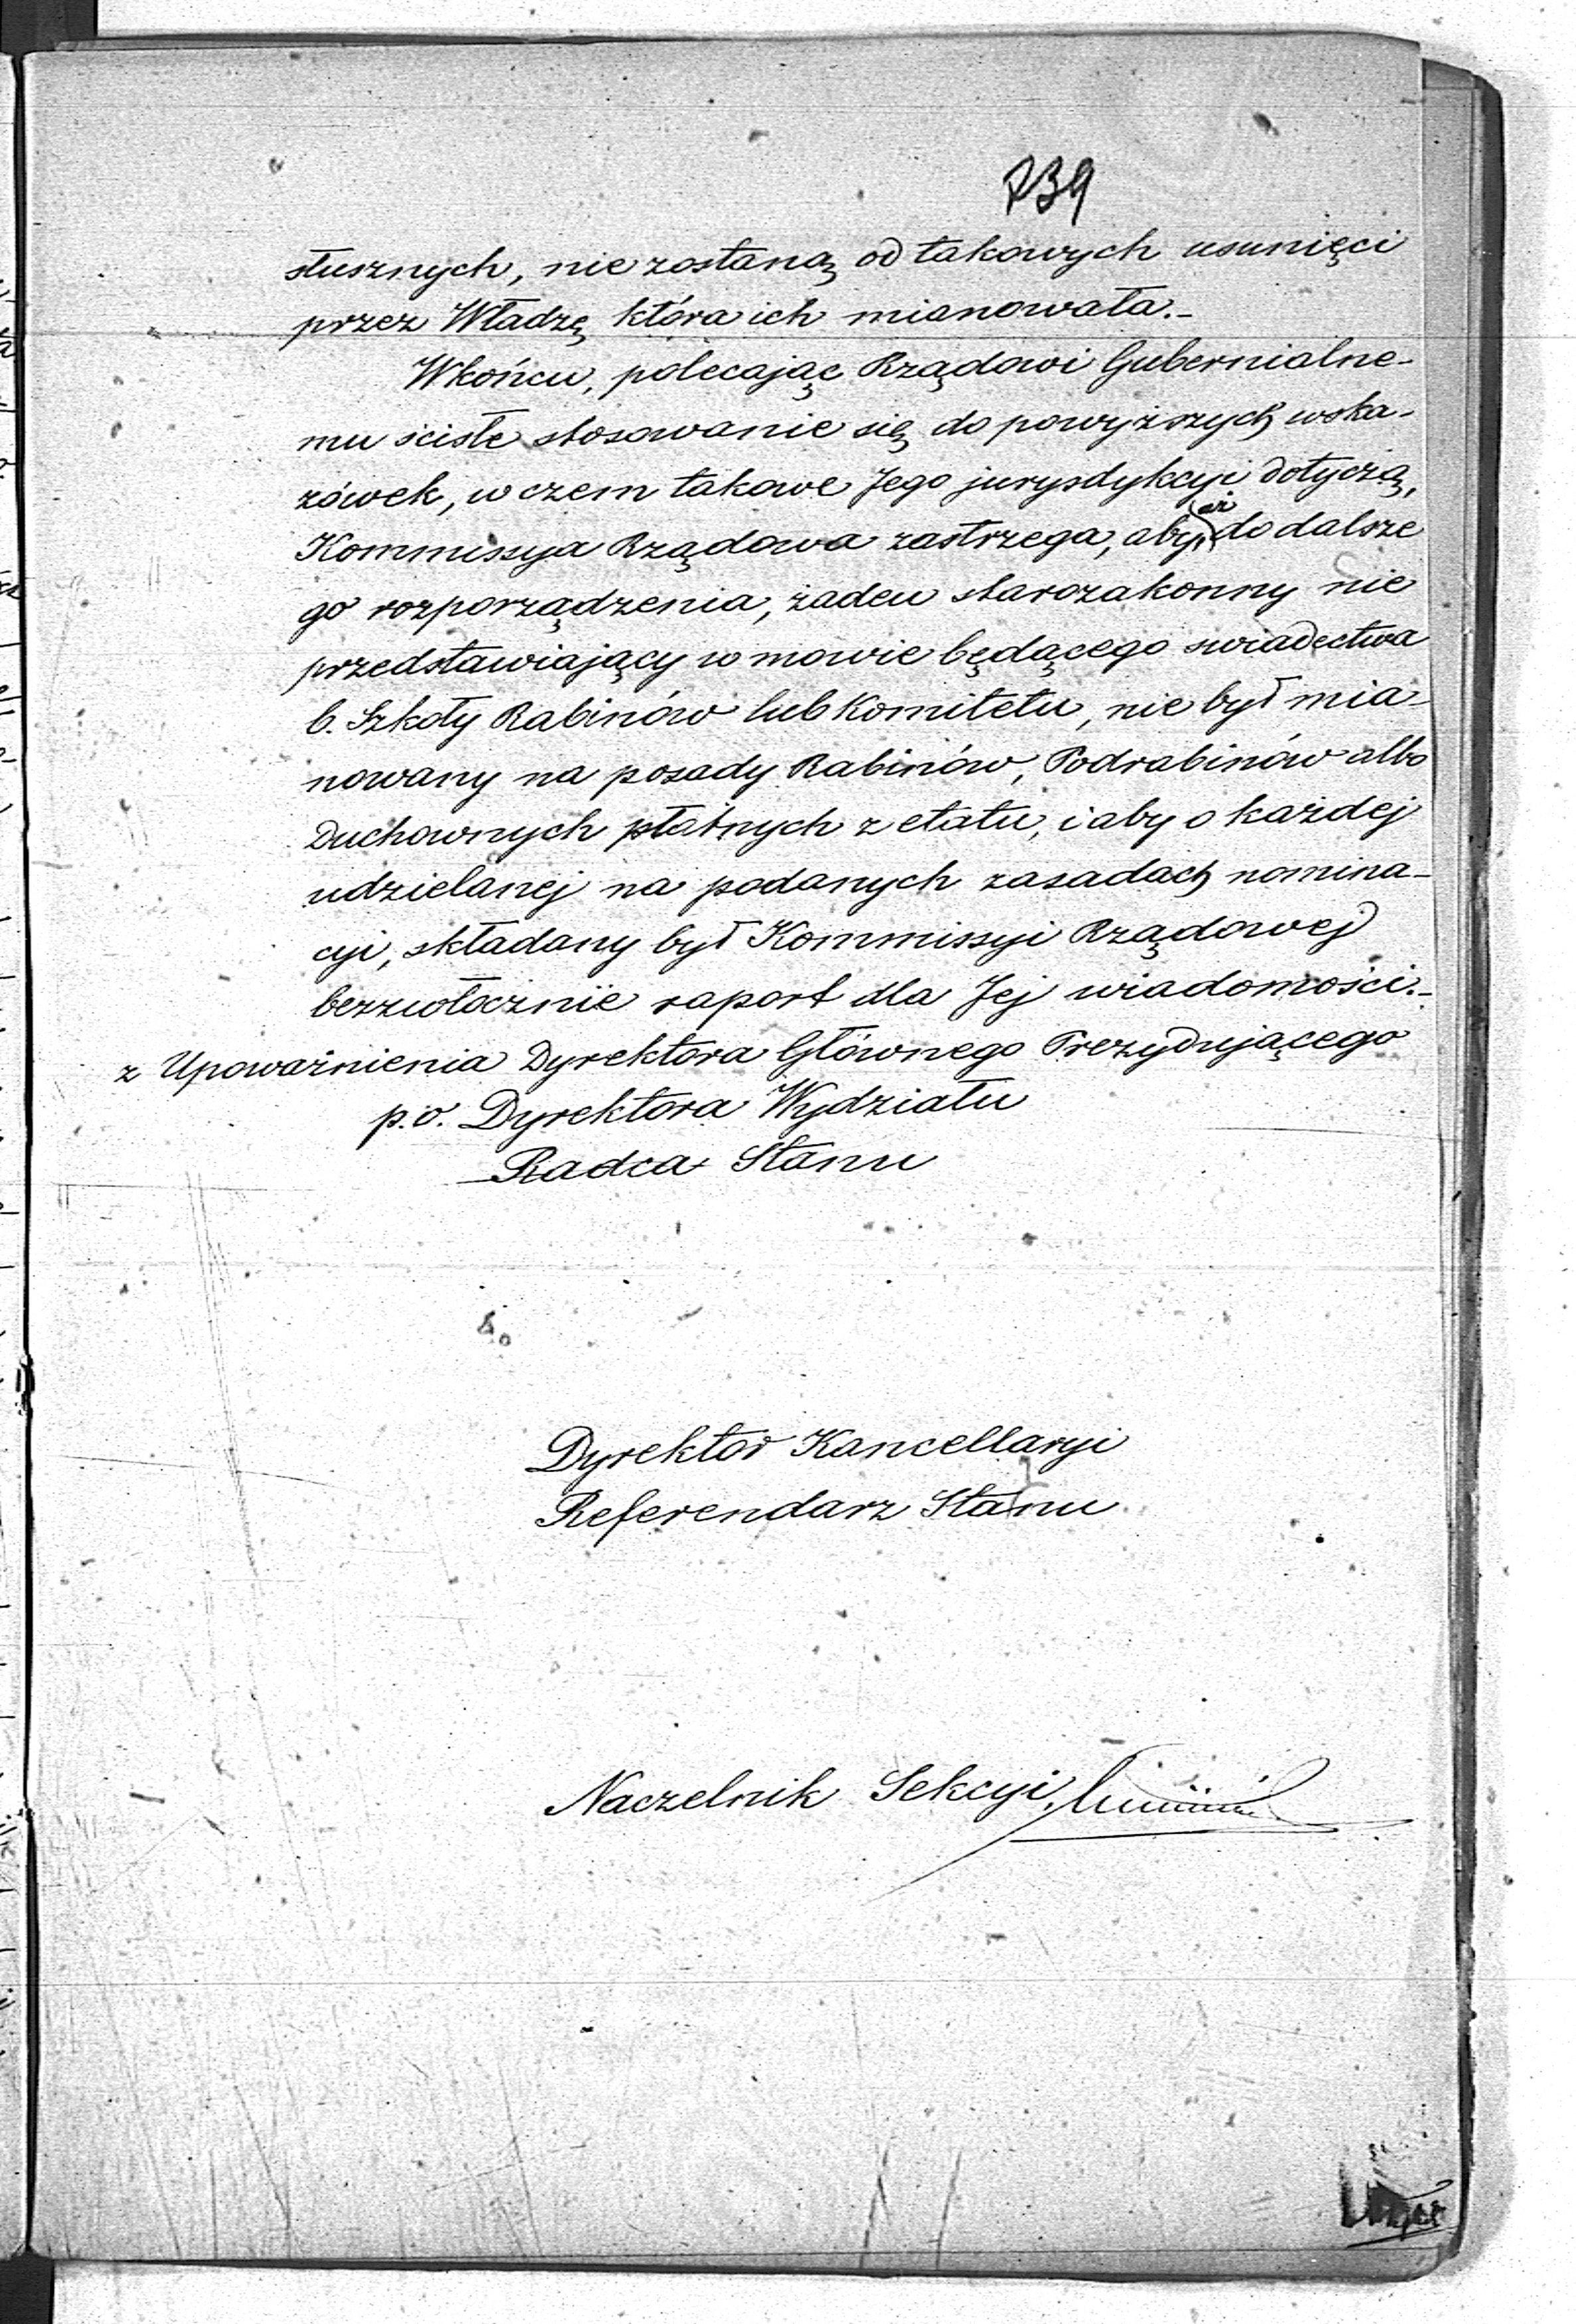 739
słusznych, nie zostaną od takowych usunięci
przez Władzę która ich mianowała.-
Wkońcu, polecając Rządowi Gubernialne-
mu ścisłe stosowanie się do powyższych wska-
zówek, w czem takowe Jego jurysdykcyi dotyczą,
Kommissya Rządowa zastrzega, aby aż do dalsze
go rozporządzenia, żaden starozakonny nie
przedstawiający w mowie będącego swiadectwa
b. Szkoły Rabinów lub Komitetu, nie był mia-
nowany na posady Rabinów, Podrabinów albo
Duchownych płatnych z etatu, i aby o każdej
udzielanej na podanych zasadach nomina-
cyi, składany był Kommissyi Rządowej
bezzwłocznie raport dla Jej wiadomości.-
z Upoważnienia Dyrektora Głównego Prezydującego
p.o. Dyrektora Wydziału
Radca Stanu
Dyrektor Kancellaryi
Referendarz Stanu
Naczelnik Sekcyi